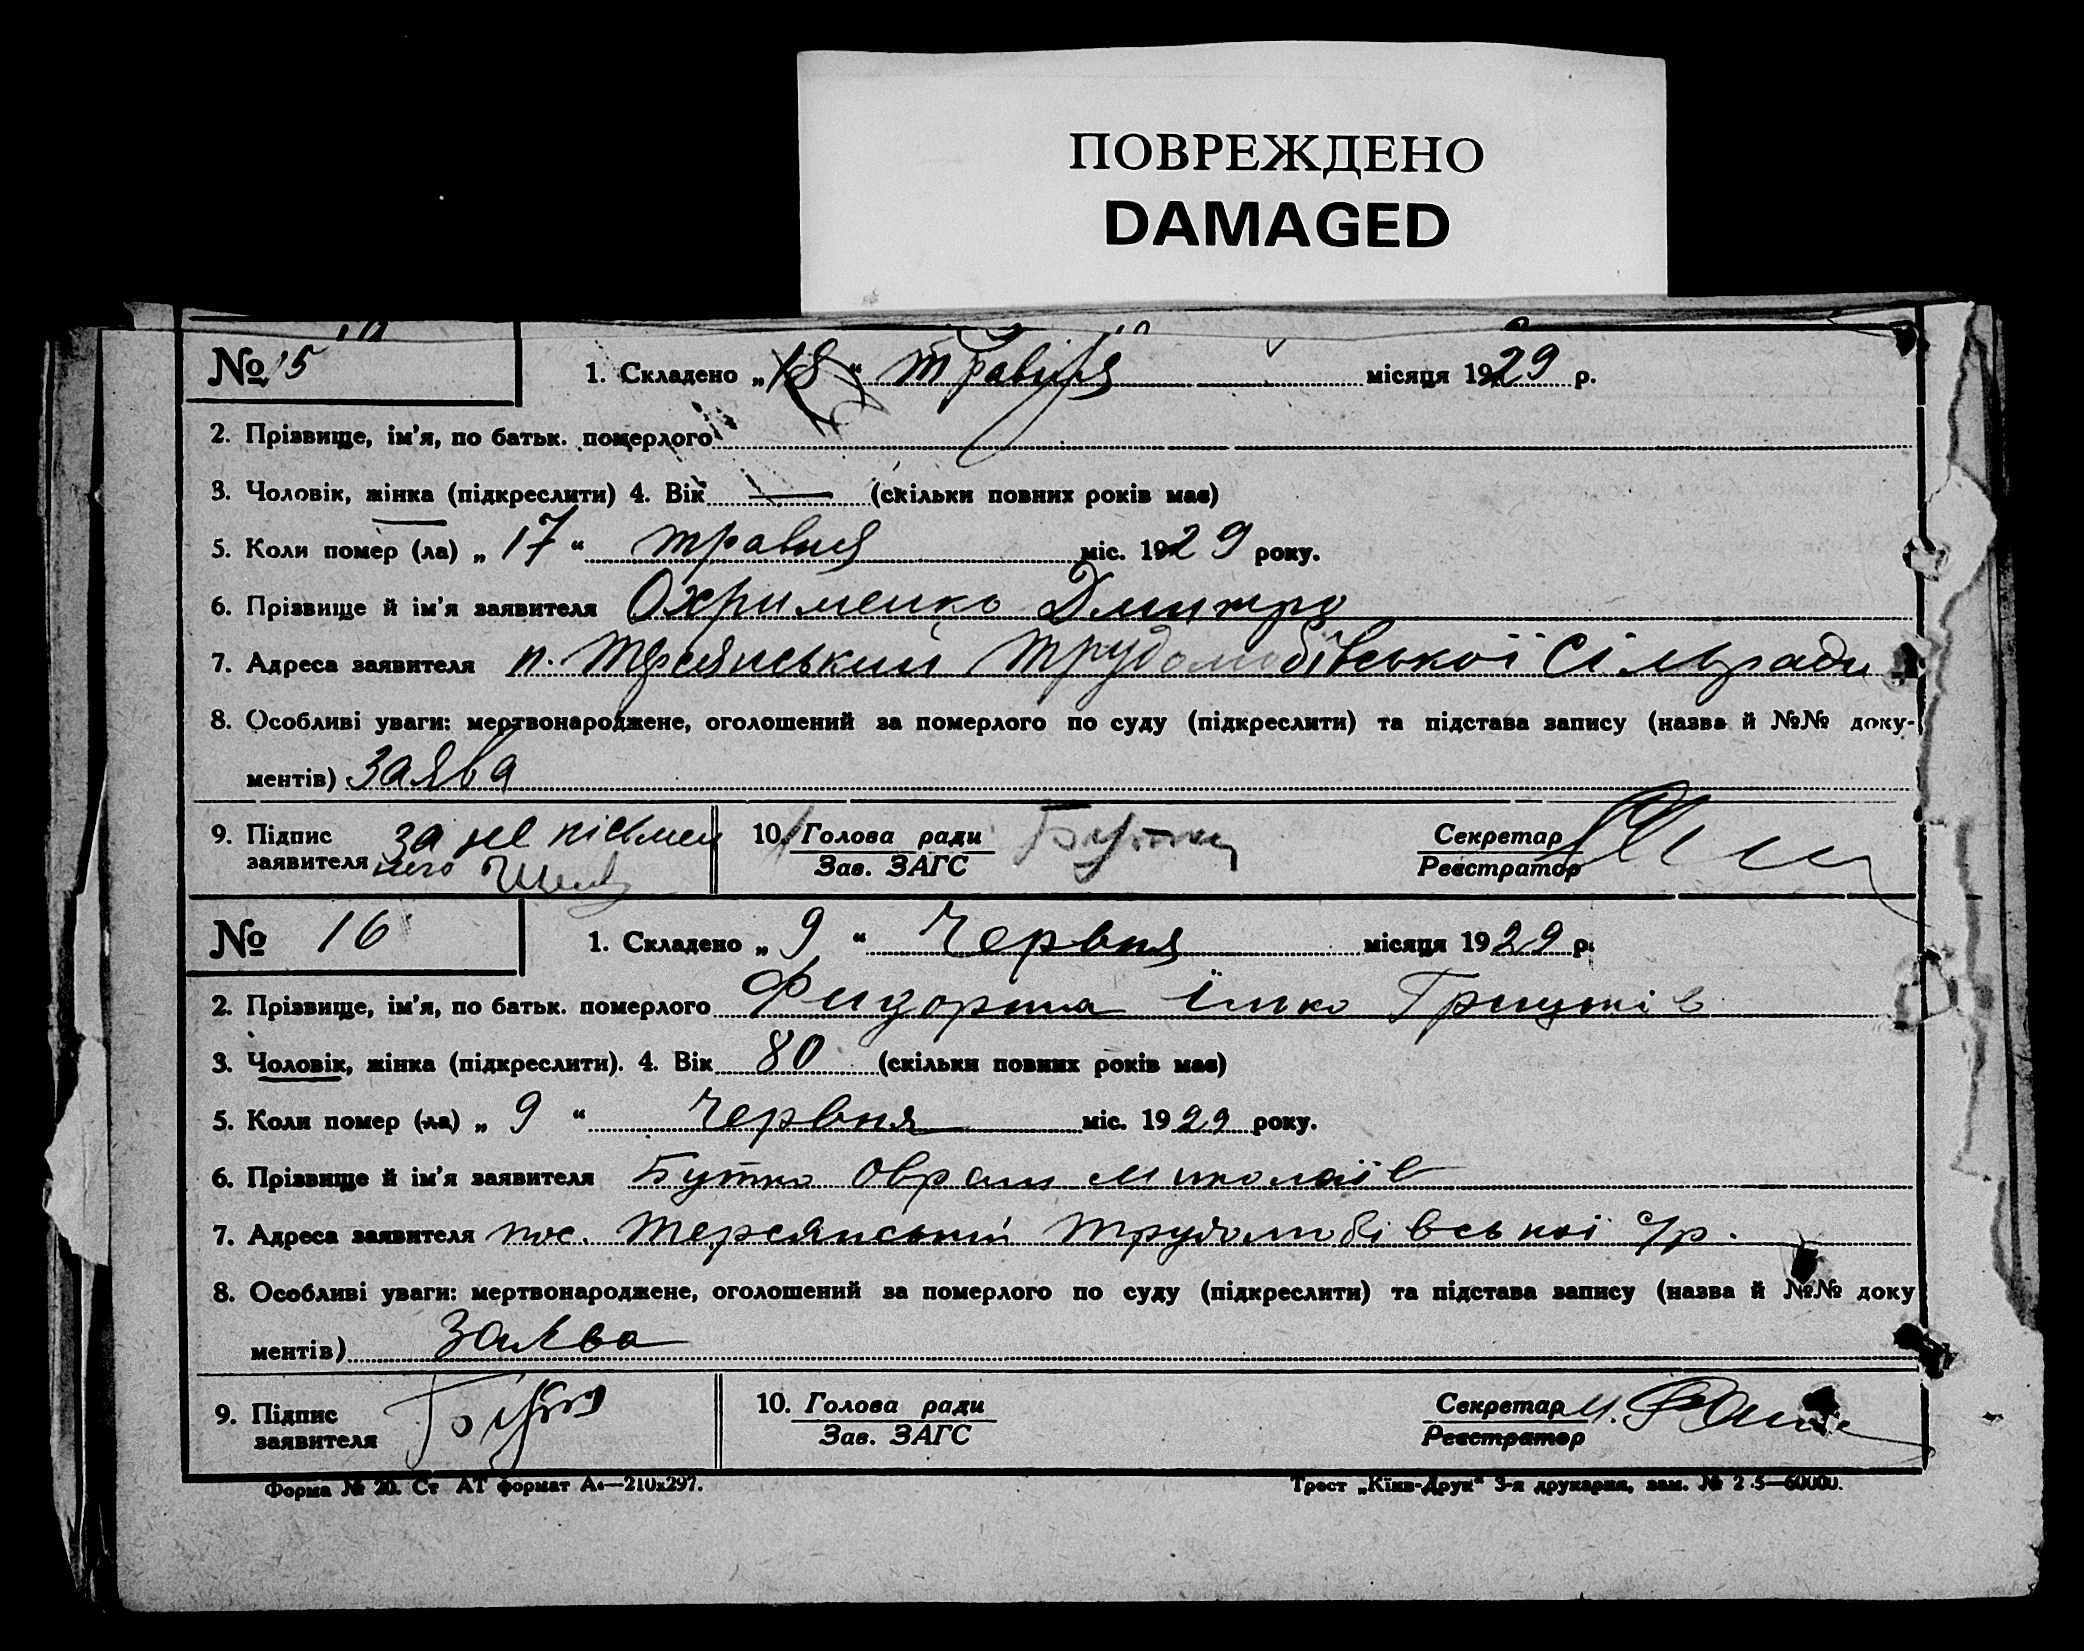 ПОВРЕЖДЕНО
DAMAGED
№ 15 1. Складено „18“ травня місяця 1929 р.
2. Прізвище, ім’я, по батьк. померлого
3. Чоловік, жінка (підкреслити) 4. Вік — (скільки повних років має)
5. Коли помер (ла) „ 17 “ травня міс. 1929 року.
6. Прізвище й ім’я заявителя Охрименко Дмитро
7. Адреса заявителя п. Терсянський Трудолюбівської сільради
8. Особливі уваги: мертвонароджене, оголошений за померлого по суду (підкреслити) та підстава запису (назва й №№ доку-
ментів) заява
9. Підпис за не пісьмен 10. Голова ради Бутко Секретар
заявителя ного Зав. ЗАГС Реєстратор
№ 16 1. Складено „ 9 “ Червня місяця 1929 р.
2. Прізвище, ім’я, по батьк. померлого Грицьків
3. Чоловік, жінка (підкреслити). 4. Вік 80 (скільки повних років має)
5. Коли помер (ла) „ 9 “ червня міс. 1929 року.
6. Прізвище й ім’я заявителя Бутко Оврам Миколаїв
7. Адреса заявителя пос. Терсянській Трудолюбівської с/р.
8. Особливі уваги: мертвонароджене, оголошений за померлого по суду (підкреслити) та підстава запису (назва й №№ доку
ментів) заява
9. Підпис Бутко 10. Голова ради Секретар
заявителя Зав. ЗАГС Реєстратор
Форма № 20. Ст АТ формат А4—210х297. Трест „Київ-Друк“ 3-я друкарня, зам. № 2 5—60000.